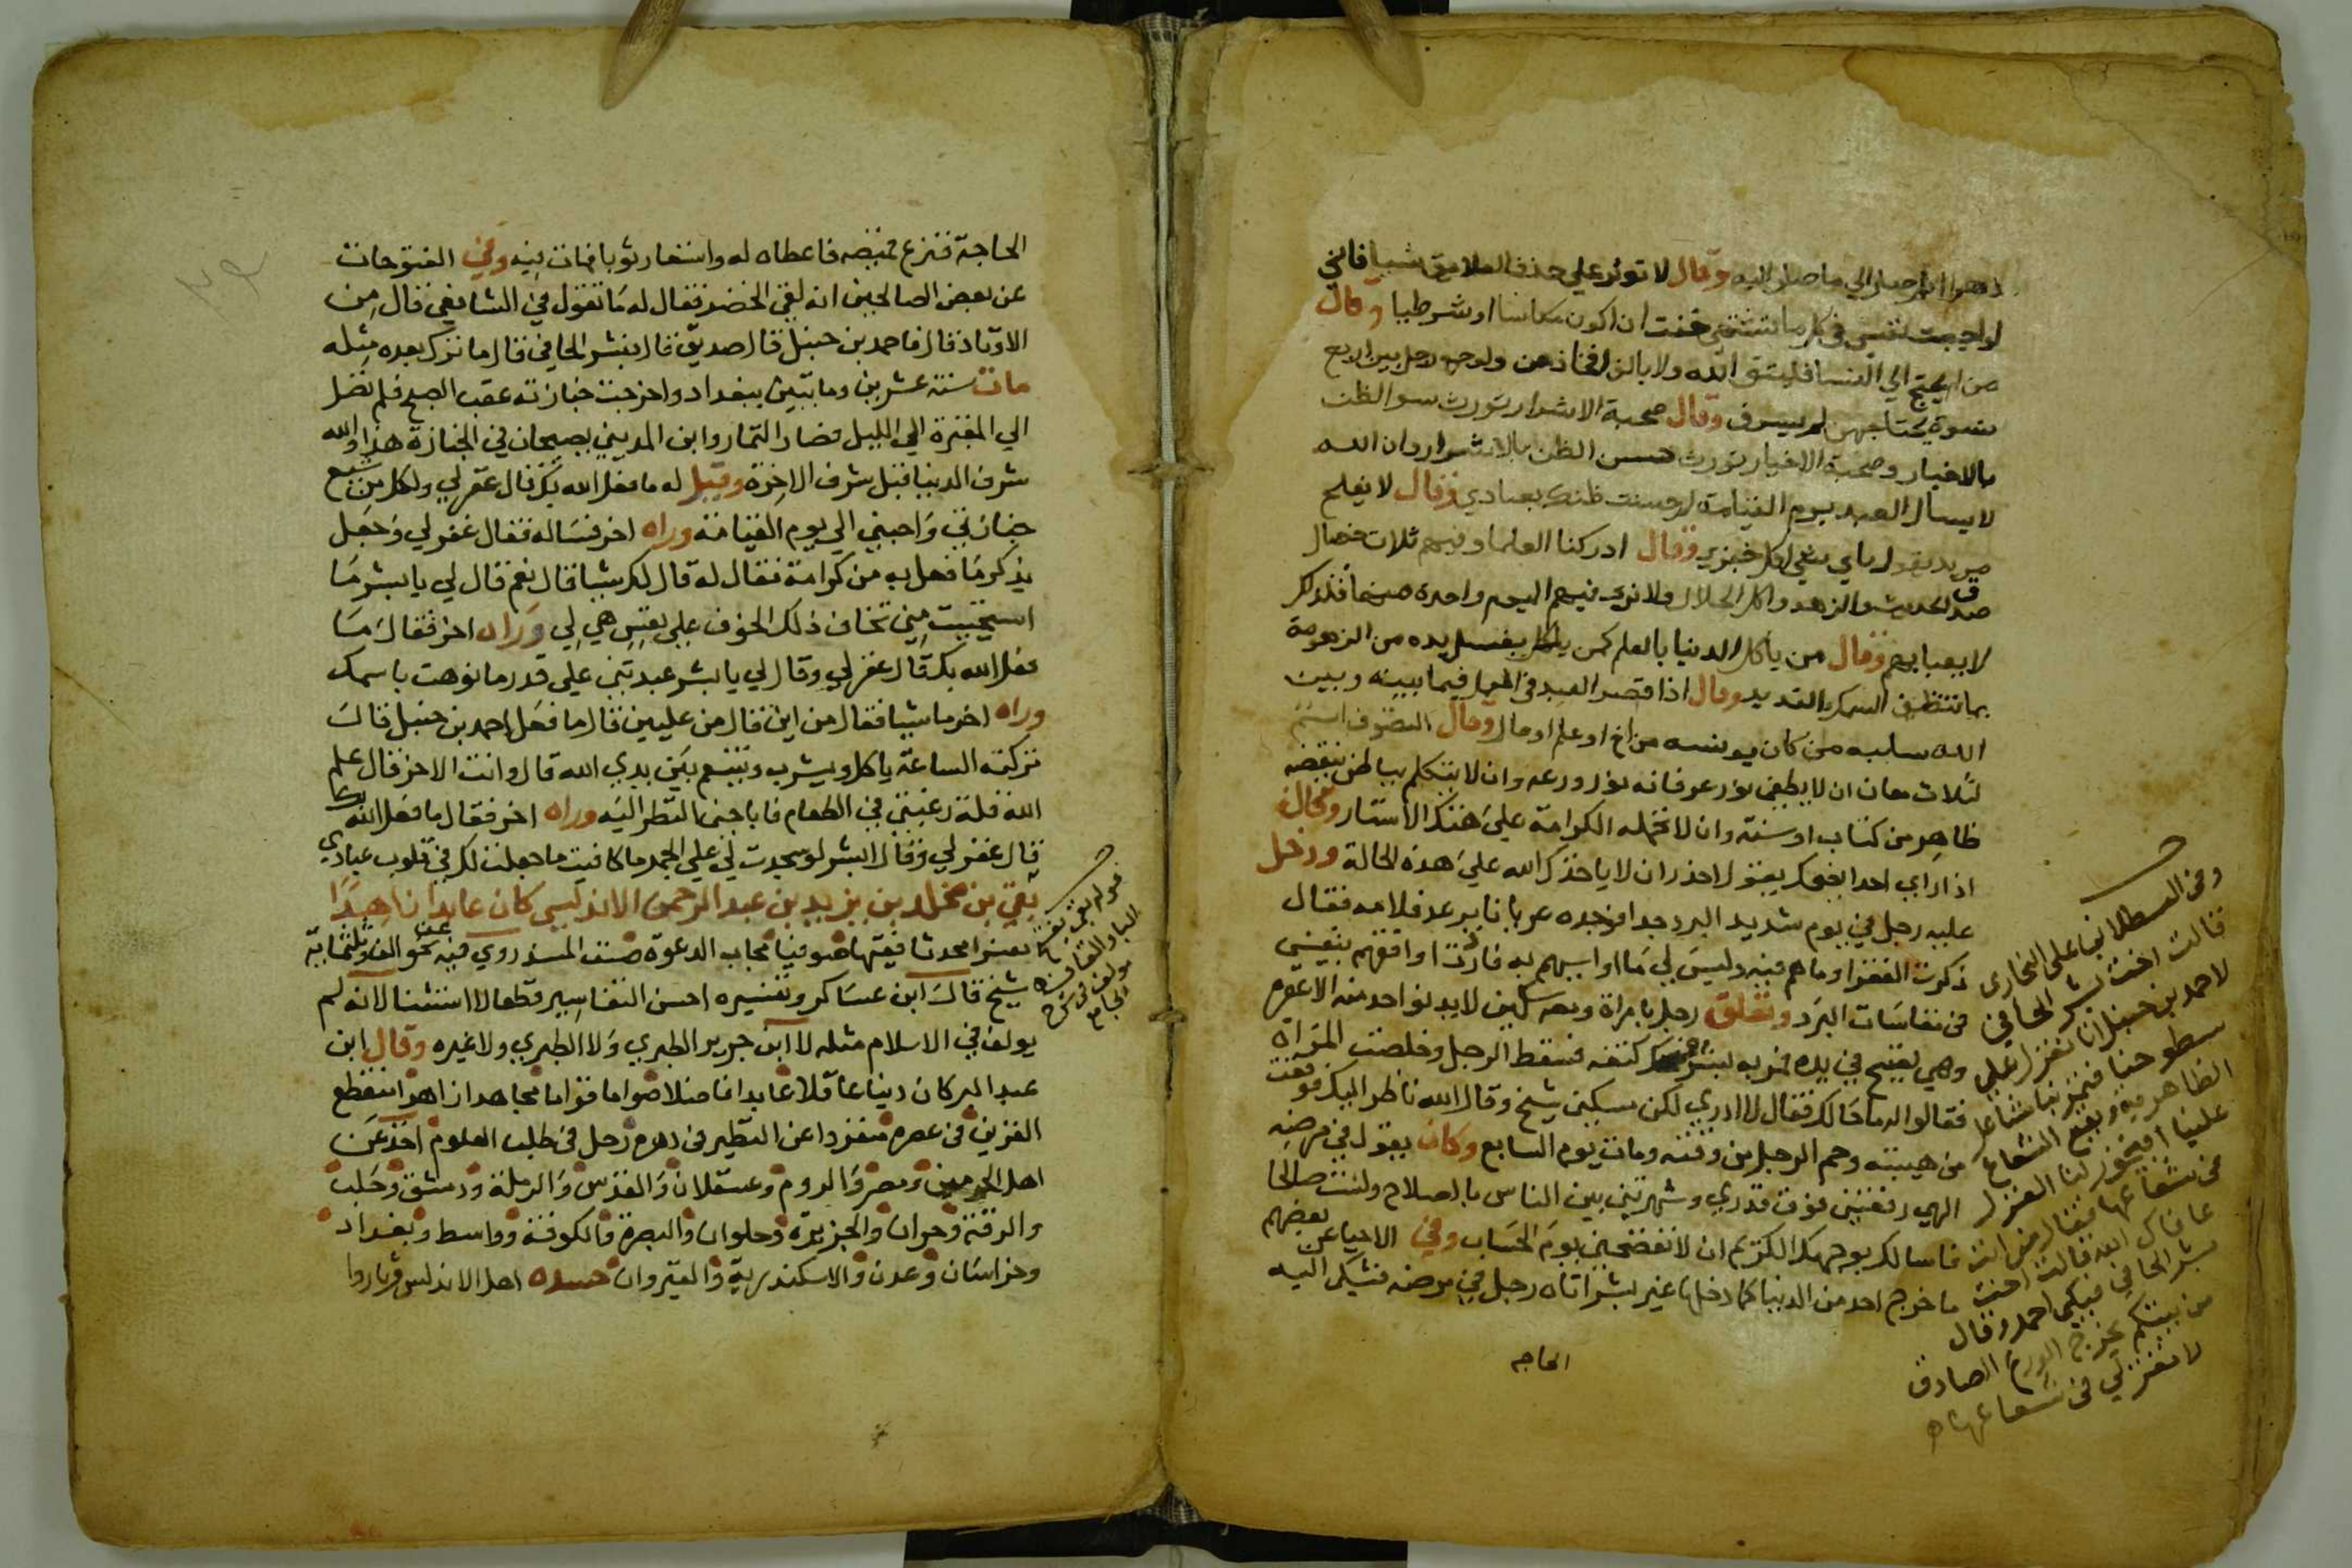 وقال لا توثر علي حذف العلايق شييا فاني
لو اجبت نفسي في كل ما تشتهي خفت ان اكون مكاسا او شرطيا وقال
من لم يحتج الي النسا فليتق الله ولا يالف افخاذهن ولو جمع رجل بين اربع
نسوة يحتاجهن لم يسرف وقال صحبة الاشرار تورث سو الظن
بالاخيار وصحبة الاخيار تورث حسن الظن بالاشرار وان الله
لا يسال العبد يوم القيامة لم حسنت ظنك بعبادي وقال لا يفلح
مريد يقول باي شي اكل خبزي وقال ادركنا العلما وفيهم ثلاث خصال
صدق الحديث والزهد واكل الحلال ولا نري فيهم اليوم واحدة منها فلذلك
لا يعبا بهم وقال من ياكل الدنيا بالعلم كمن ياكل يغسل يده من الزهومة
بما تنظف السمك القديد وقال اذا قصر العبد في العمل فيما بينه وبين
الله سلبه من كان يونسه من اخ او علم او مال وقال التصوف اسم
لثلاث معان ان لا يطفي نور عرفانه نور ورعه وان لا يتكلم بباطن ينقضه
ظاهر من كتاب او سنة وان لا تحمله الكرامة علي هتك الاستار وكان
اذا راي احدا يضحك يقول احذر ان لا ياخذك الله علي هذه الحالة ودخل
عليه رجل في يوم شديد البرد جدا فوجده عريانا يرعد فلامه فقال
ذكرت الفقرا وما هم فيه وليس لي ما اواسيهم به فاردت اوافقهم بنفسي
في مقاسات البرد وتعلق رجل بامراة ومعه سكين لا يدنو احد منه الا عقره
وهي تصيح في يده فمر به بشر فحك كتفه فسقط الرجل وخلصت المراة
فقالوا له ما حالك فقال لا ادري لكن مسكين شيخ وقال الله ناظر اليك فوقعت
من هيبته وحم الرجل من وقته ومات يوم السابع وكان يقول في مرضه
الهي رفعتني فوق قدري وشهرتني بين الناس بالصلاح ولست صالحا
فاسالك بوجهك الكريم ان لا تفضحني يوم الحساب وفي الاحيا عن بعضهم
ما خرج احد من الدنيا كما دخلها غير بشر اتاه رجل في مرضه فشكي اليه
الحاجه
وفي القسطلاني علي البخاري
قالت اخت بشر الحافي
لاحمد بن حنبل انا نغزل علي
سطوحنا فتمر بنا مشاعل
الظاهرية ويقع الشعاع
علينا افيجوز لنا الغزل
في شعاعها فقال من انت
عافاك الله قالت اخت
بشر الحافي فبكي احمد وقال
من بيتكم يخرج الورع الصادق
لا تغزلي في شعاعها
الحاجة فنزع قميصه فاعطاه له واستعار ثوبا فمات فيه وفي الفتوحات
عن بعض الصالحين انه لقي الخضر فقال له ما تقول في الشافعي قال من
الاوتاد قال فاحمد بن حنبل قال صديق قال بشر الحافي قال ما ترك بعده مثله
مات سنة عشرين ومايتين ببغداد واخرجت جنازته عقب الصبح فلم تصل
الي المقبرة الي الليل فصار التمار وابن المديني يصيحان في الجنازة هذا والله
شرف الدنيا قبل شرف الاخرة وقيل له ما فعل الله بك قال غفر لي ولكل من شيع
جنازتي واحبني الي يوم القيامة وراه اخر فساله فقال غفر لي وجعل
يذكر ما فعل به من كرامة فقال له قال لك شيا قال نعم قال لي يا بشر ما
استحييت مني تخاف ذلك الخوف علي نفس هي لي وراه اخر فقال ما
فعل الله بك قال غفر لي وقال لي يا بشر عبدتني علي قدر ما نوهت باسمك
وراه اخر ماشيا فقال من اين قال من عليين قال ما فعل احمد بن حنبل قال
تركته الساعة ياكل ويشرب ويتنعم بين يدي الله قال وانت الاخر قال علم
الله قلة رغبتي في الطعام فاباحني النظر اليه وراه اخر فقال ما فعل الله بك
قال غفر لي وقال ابشر لو سجدت لي علي الجمر ما كافيت ما جعلت لك في قلوب عبادي
بقي بن مخلد بن يزيد بن عبد الرحمن الاندلسي كان عابدا زاهدا
مفسرا محدثا فقيها صوفيا مجاب الدعوة صنف المسند روي فيه عن نحو الف وثلثماية
شيخ قال ابن عساكر وتفسيره احسن التفاسير قطعا لا استثنا لانه لم
يولف في الاسلام مثله لا ابن جرير الطبري ولا الطبري ولا غيره وقال ابن
عبد البر كان دينا عاقلا عابدا فاضلا صواما قواما مجاهدا زاهدا منقطع
القرين في عصره منفردا عن النظير في دهره رحل في طلب العلوم اخذ عن
اهل الحرمين ومصر والروم وعسقلان والقدس والرملة ودمشق وحلب
والرقة وحران والجزيرة وحلوان والبصرة والكوفة وواسط وبغداد
وخراسان وعدن والاسكندرية والقيروان حسده اهل الاندلس